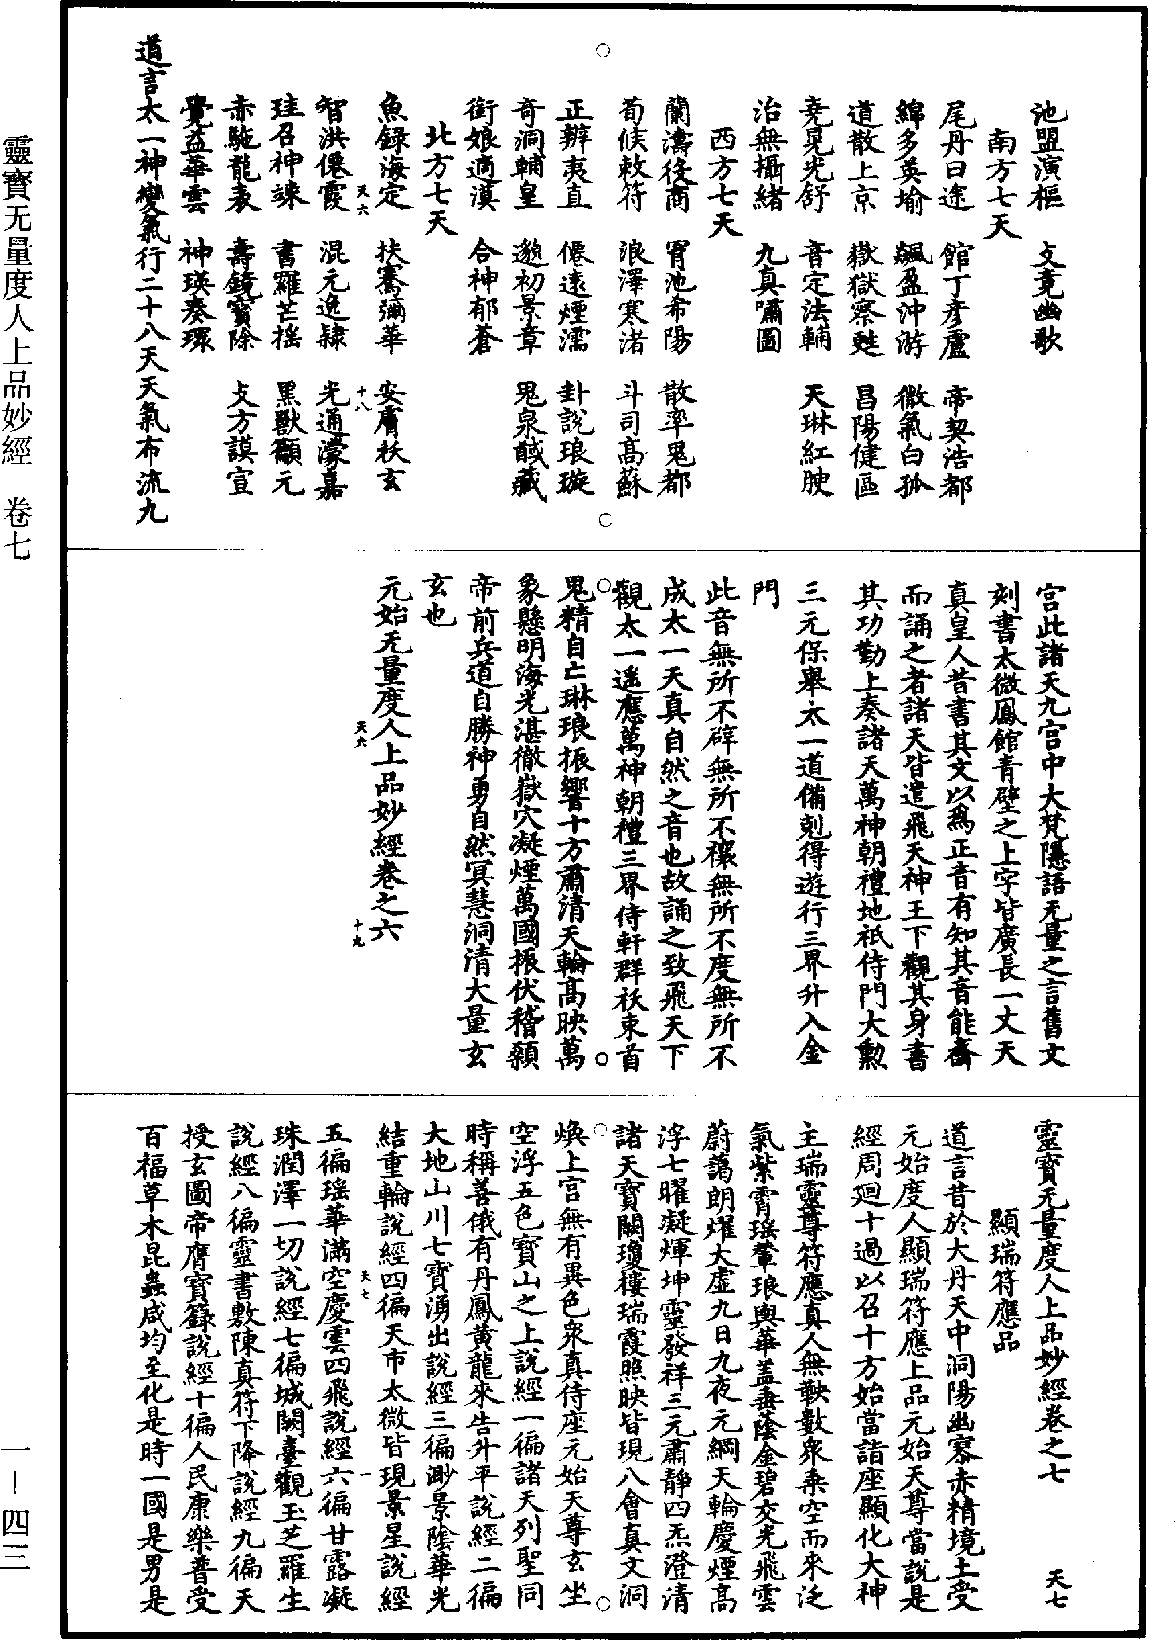 靈寶无量度人上品妙經 卷七
一—四三
池盟演樞 文竟幽歌
南方七天
尾丹日途 館丁彦盧 帝契浩都
綿多英瑜 飆盈沖游 微氣白孤
道散上京 嶽獄察甦 昌陽健區
堯晃光舒 音定法輔 天琳紅腴
治無攝緒 九真囑圖
西方七天
蘭濤後商 胃池希陽 散率鬼都
荀候敕符 浪澤寒渚 斗司高蘇
正辨夷直 僊遠煙濡 卦說琅璇
奇洞輔皇 邈初景章 鬼泉馘藏
街娘適漠 合神郁蒼
北方七天
魚録海定 扶騫彌華 安膺祅玄
天六
十八
智洪僊霞 混元逸隸 光通濛嘉
珪召神竦 書羅芒摇 黑獸顱元
赤駈龍表 壽鏡寶除 文方謨宣
覺益華雲 神瑛奏璟
道言太一神變氣行二十八天天氣布流九
宫此諸天九宫中大梵隱語无量之言舊文
刻書太微鳳館青壁之上字皆廣長一丈天
真皇人昔書其文以為正音有知其音能齋
而誦之者諸天皆遣飛天神王下觀其身書
其功勤上奏諸天萬神朝禮地祇侍門大勲
三元保舉太一道備剋得遊行三界升入金
門
此音無所不辟無所不禳無所不度無所不
成太一天真自然之音也故誦之致飛天下
觀太一遥應萬神朝禮三界侍軒群祅束首
鬼精自亡琳琅振響十方肅清天輪高映萬
象懸明海光湛徹嶽穴凝煙萬國振伏稽顙
帝前兵道自勝神勇自然冥慧洞清大量玄
玄也
元始无量度人上品妙經卷之六
天六
十九
靈寶无量度人上品妙經卷之七
天七
顯瑞符應品
道言昔於大丹天中洞陽幽寥赤精境上受
元始度人顯瑞符應上品元始天尊當說是
經周廻十過以召十方始當詣座顯化大神
主瑞靈尊符應真人無鞅數衆乘空而來泛
氣紫霄瑶輦琅輿華蓋垂蔭金碧交光飛雲
蔚藹朗燿大虚九日九夜元綱天輪慶煙高
浮七曜凝煇坤靈發祥三元肅靜四炁澄清
諸天寶闕瓊樓瑞霞照映皆現八會真文洞
焕上宫無有異色衆真侍座元始天尊玄坐
空浮五色寶山之上說經一徧諸天列聖同
時稱善俄有丹鳳黄龍來告升平說經二徧
大地山川七寶湧出說經三徧渺景陰華光
結重輪說經四徧天市太微皆現景星說經
天七
一
五徧瑶華滿空慶雲四飛說經六徧甘露凝
珠潤澤一切說經七徧城闕臺觀玉芝羅生
說經八徧靈書敷陳真符下降說經九徧天
授玄圖帝膺寶籙說經十徧人民康樂普受
百福草木昆蟲咸均至化是時一國是男是